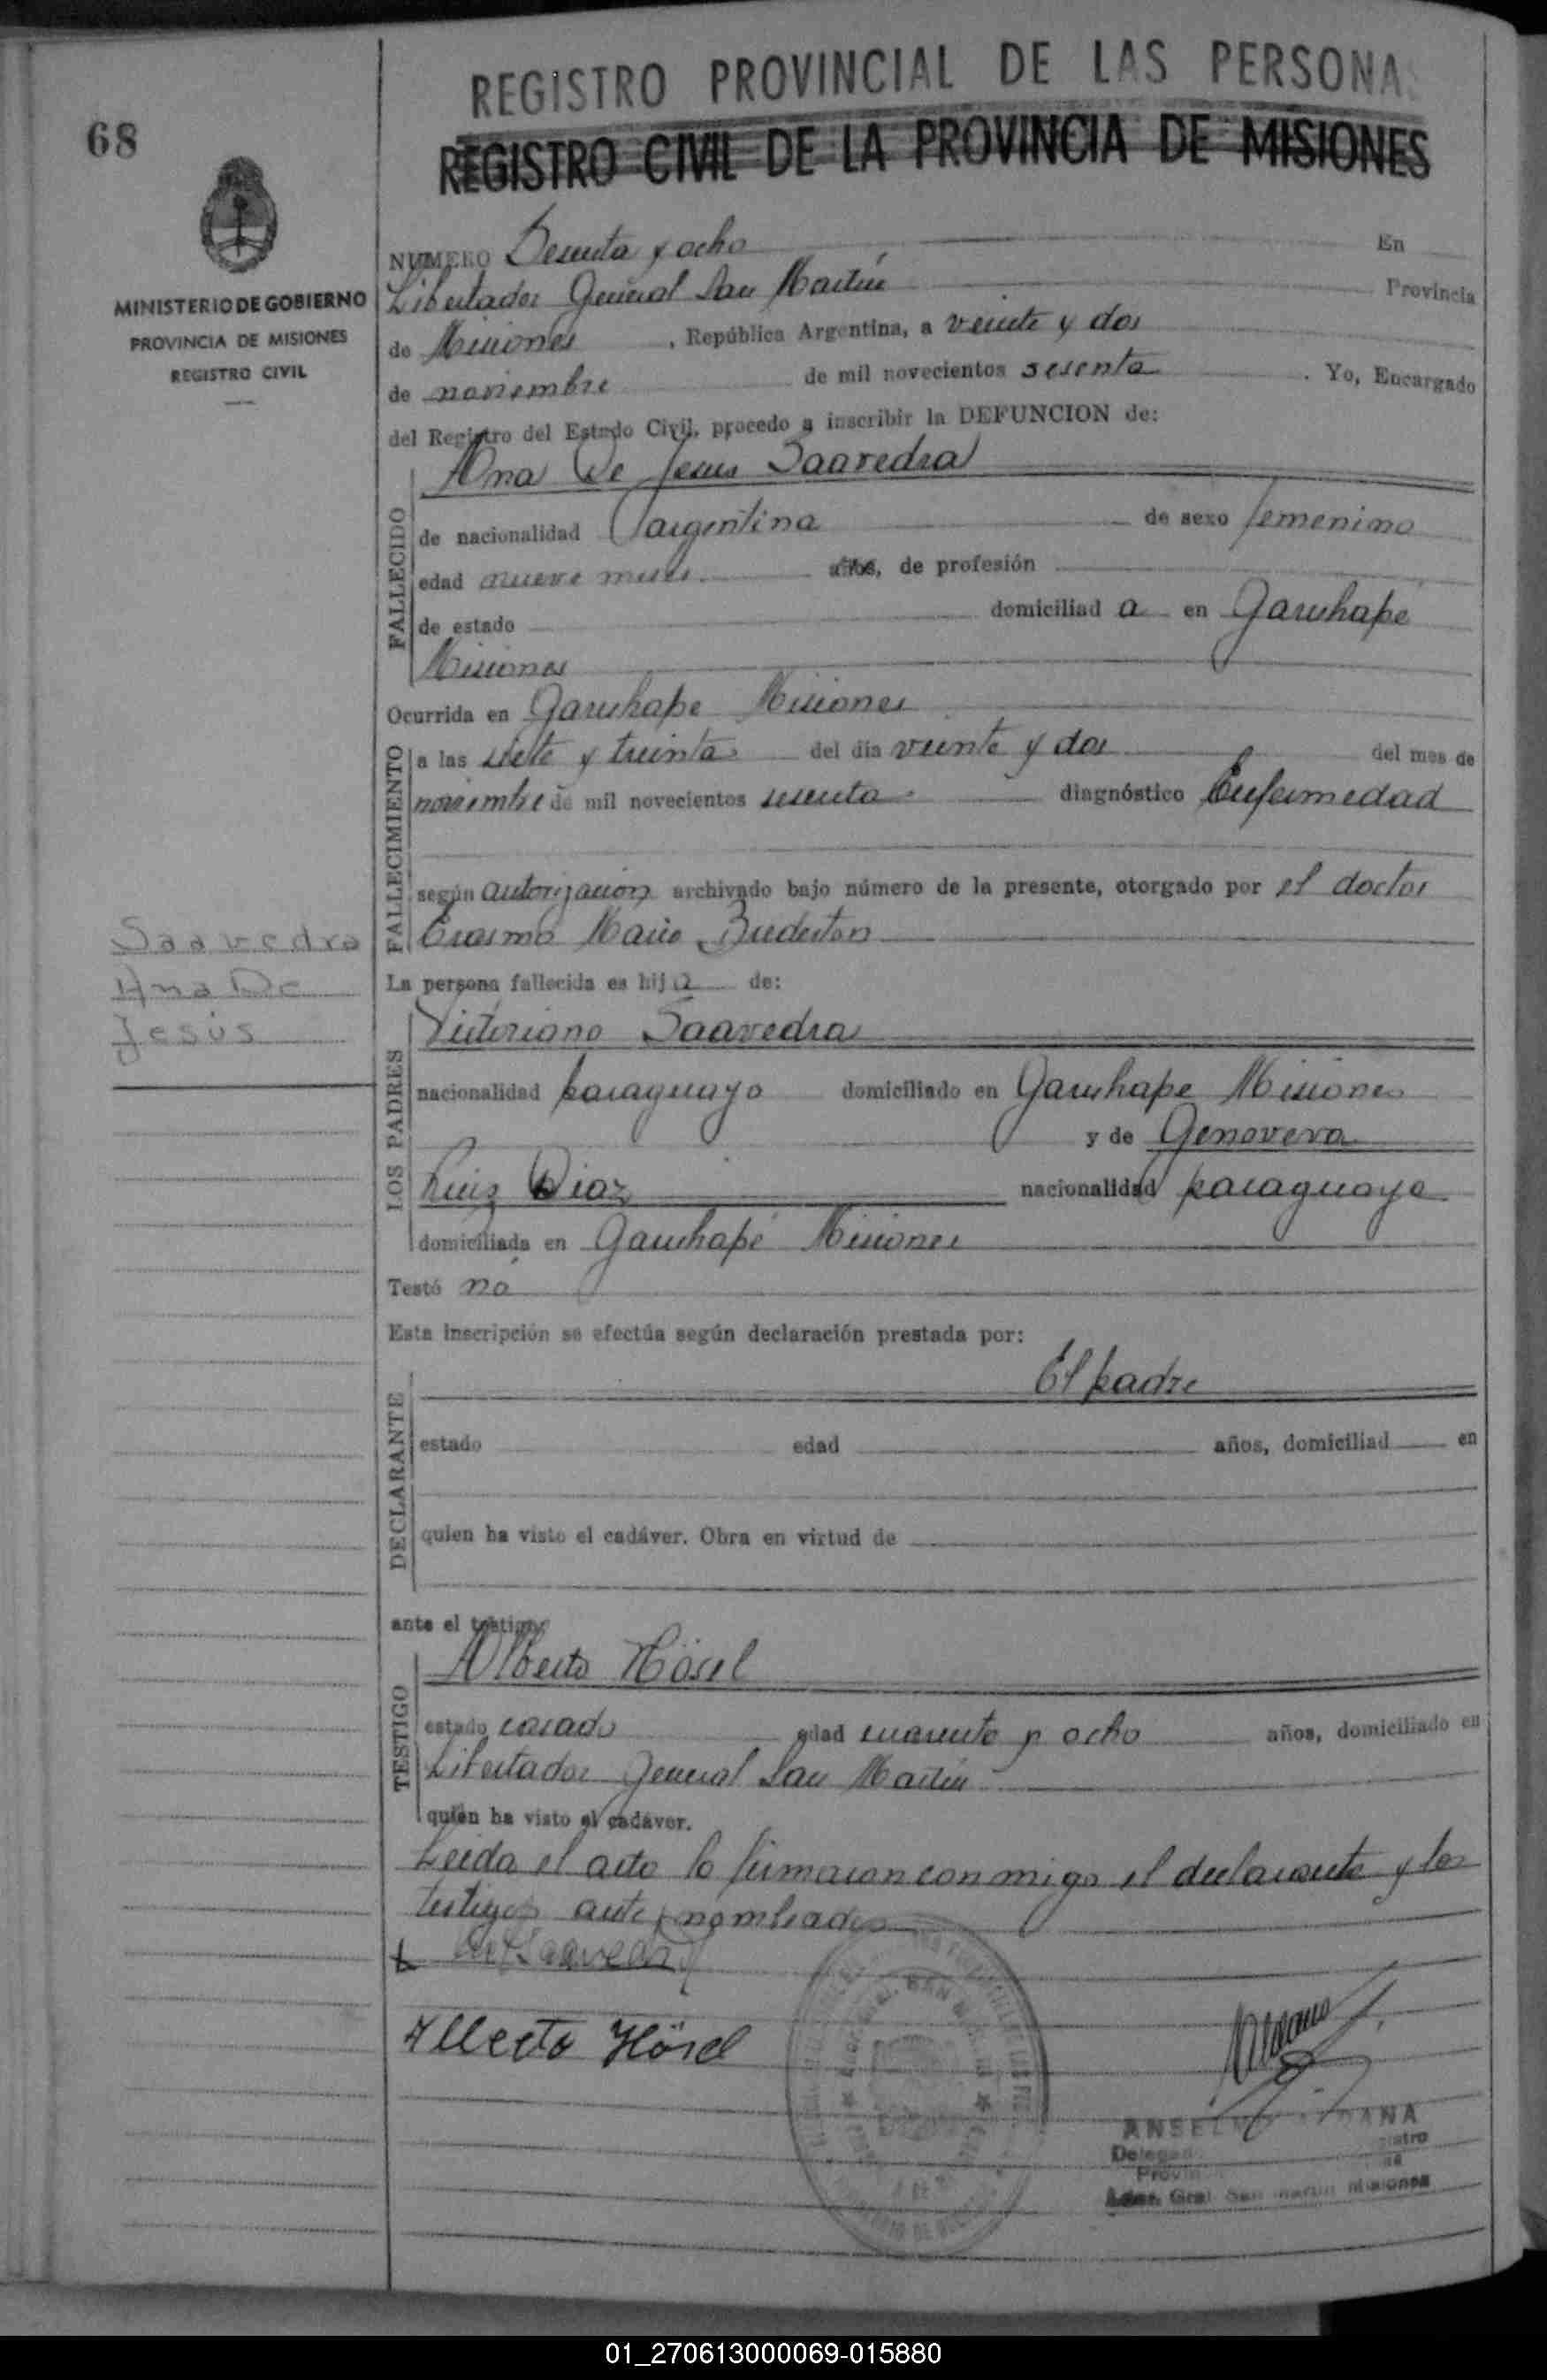 68
REGISTRO PROVINCIAL DE LAS PERSONAS
REGISTRO CIVIL DE LA PROVINCIA DE MISIONES
MINISTERIO DE GOBIERNO
PROVINCIA DE MISIONES
REGISTRO CIVIL
NUMERO Sesenta y ocho En
Libertador General San Martín Provincia
de Misiones, República Argentina, a veinte y dos
de noviembre de mil novecientos sesenta. Yo, Encargado
del Registro del Estado Civil, procedo a inscribir la DEFUNCION de:
Ana De Jesus Saavedra
FALLECIDO
de nacionalidad argentina de sexo femenino
edad nueve meses años, de profesión
de estado domiciliad a en Garuhapé
Misiones
Ocurrida en Garuhape Misiones
FALLECIMIENTO
a las siete y treinta del día veinte y dos del mes de
noviembre de mil novecientos sesenta diagnóstico Enfermedad
según autorizacion archivado bajo número de la presente, otorgado por el doctor
Erasmo Mario
Saavedra
Ana De
Jesús
La persona fallecida es hij a de:
LOS PADRES
Victoriano Saavedra
nacionalidad paraguayo domiciliado en Garuhape Misiones
y de Genoveva
Ruiz Diaz nacionalidad paraguaya
domiciliada en Garuhapé Misiones
Testó no
Esta inscripción se efectúa según declaración prestada por:
El padre
DECLARANTE
estado edad años, domiciliad en
quien ha visto el cadáver. Obra en virtud de
ante el testigo:
TESTIGO
Alberto Hösel
estado casado edad cuarenta y ocho años, domiciliado en
Libertador General San Martín
quien ha visto el cadáver.
Leida el acta la firmaron conmigo el declarante y los
testigos ante nombrados
Saavedra
Alberto Hösel
Ldor. Gral San Martin Misiones
01_270613000069-015880